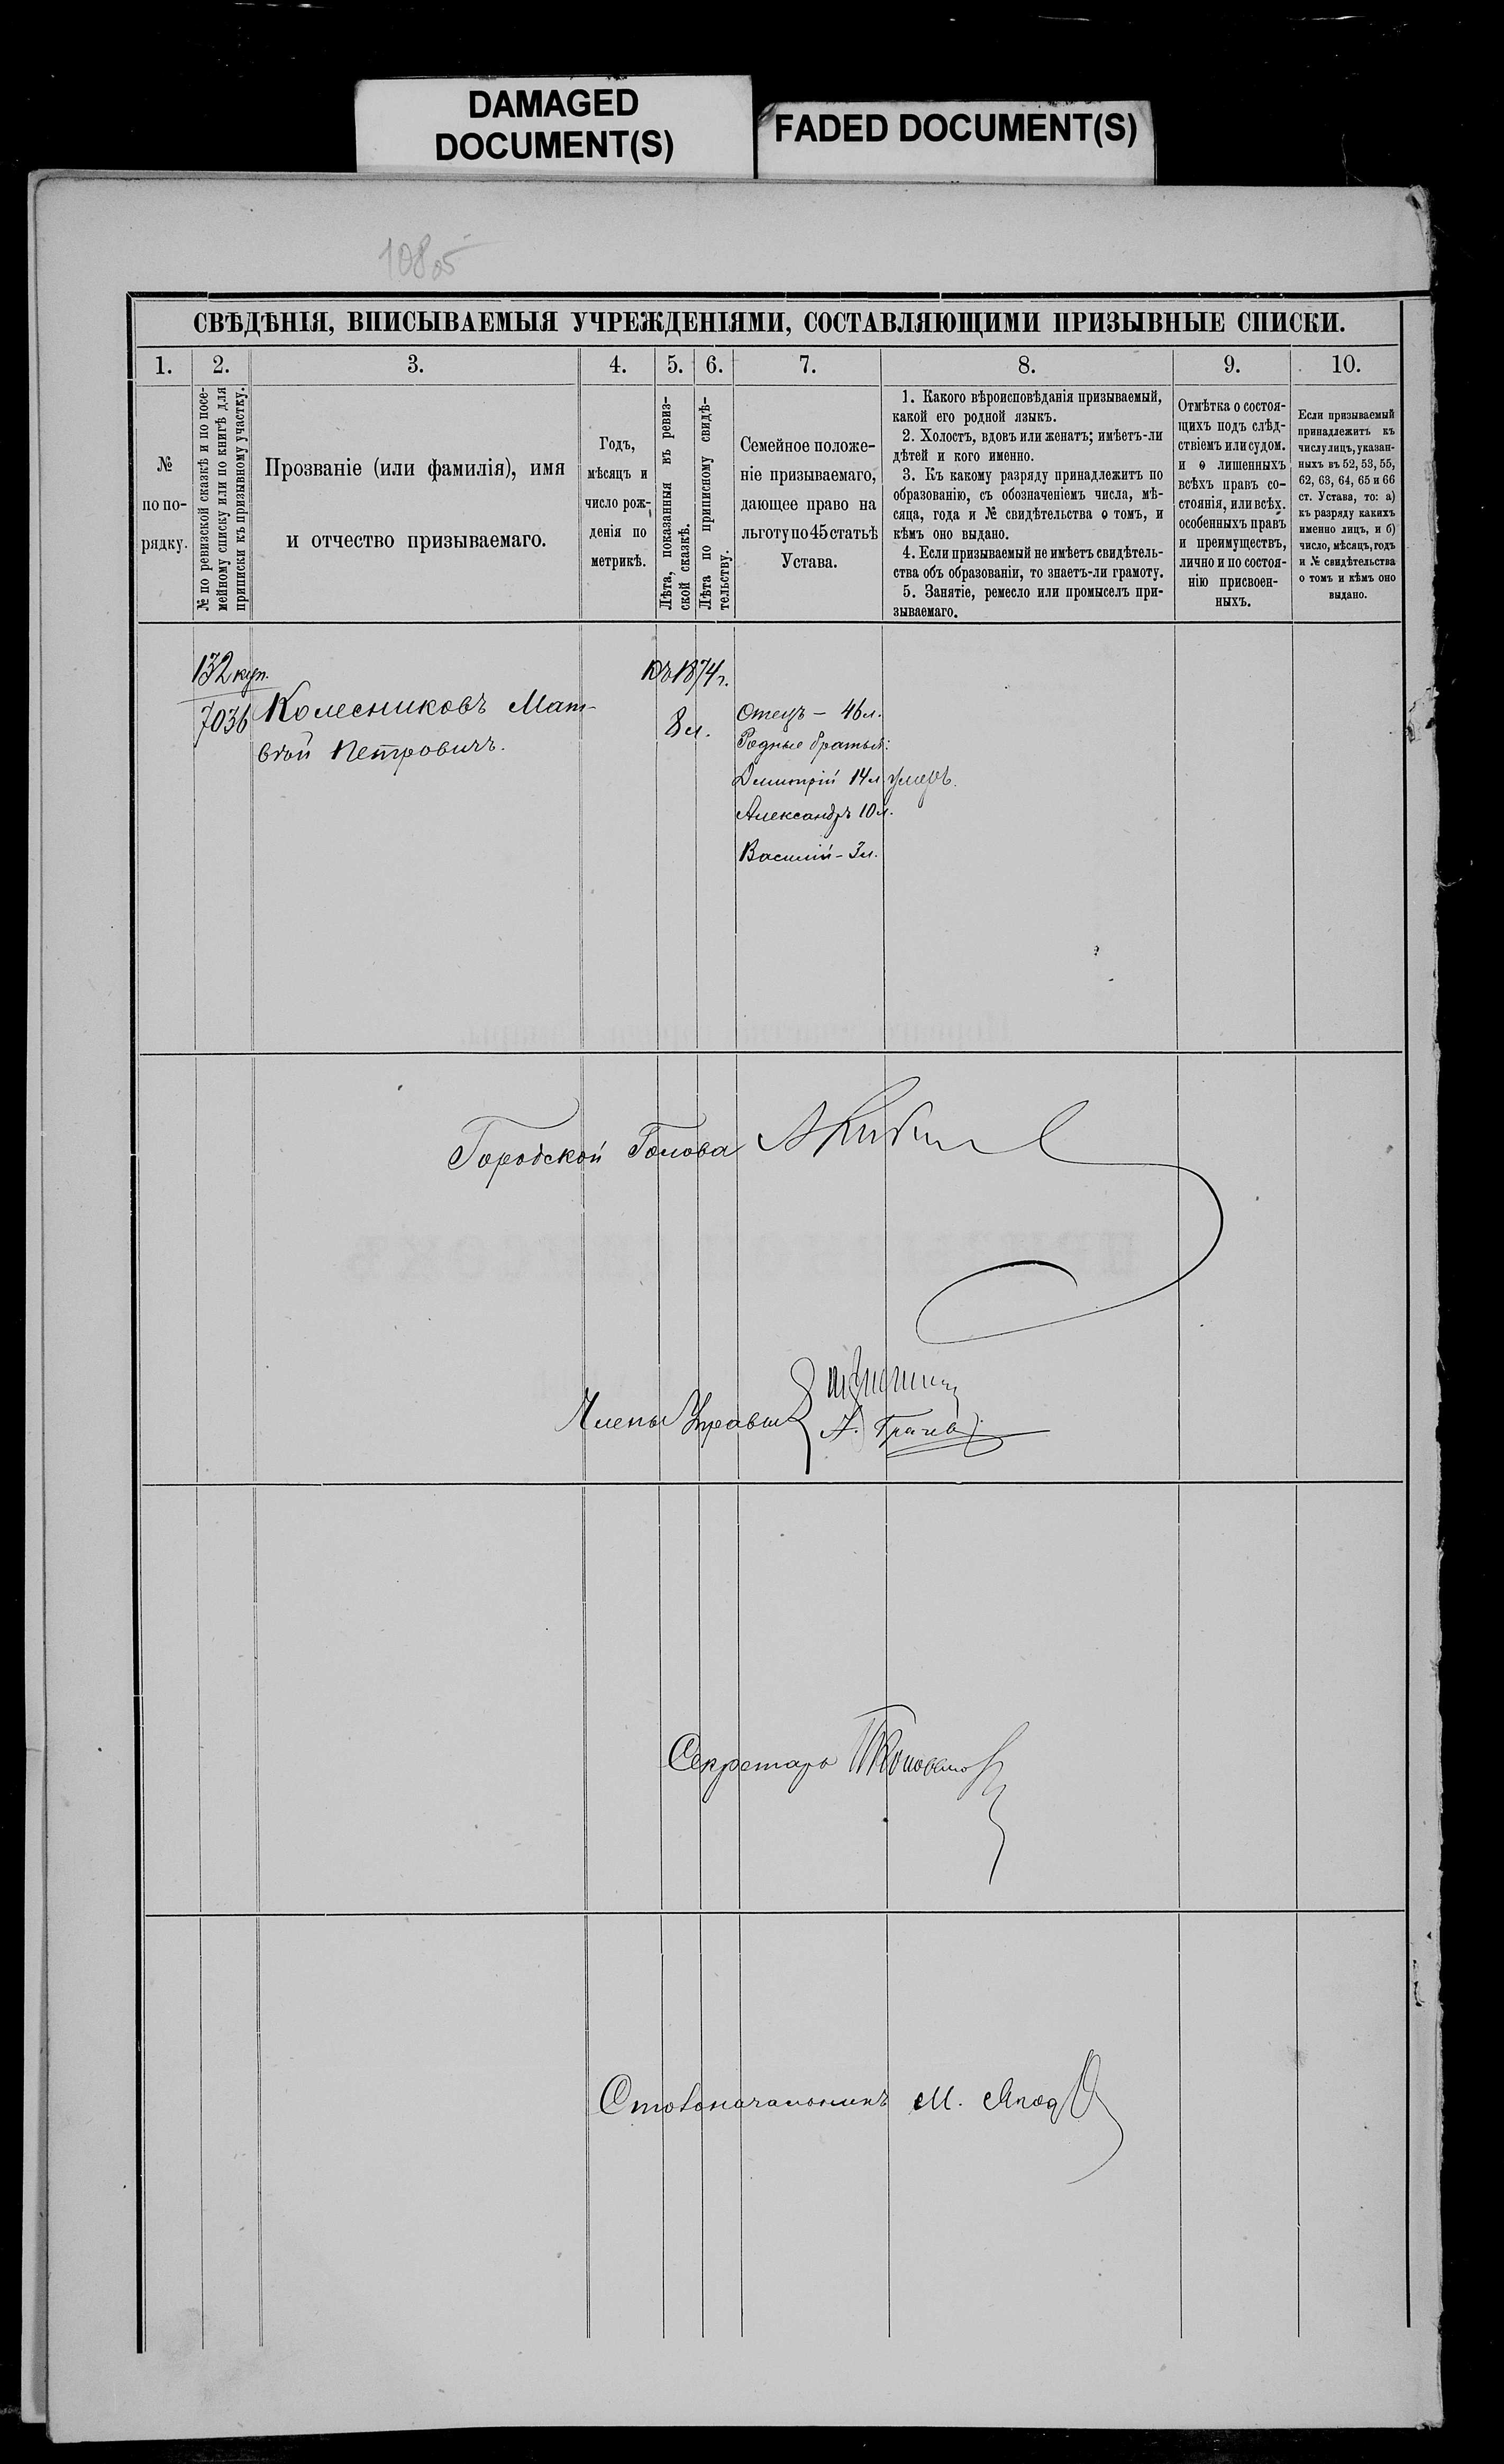 DAMAGED
DOCUMENT(S)
FADED DOCUMENT(S)
СВѢДѢНІЯ, ВПИСЫВАЕМЫЯ УЧРЕЖДЕНІЯМИ, СОСТАВЛЯЮЩИМИ ПРИЗЫВНЫЕ СПИСКИ.
1. 2. 3. 4. 5. 6. 7. 8. 9. 10.
№
по по-
рядку.
№ по ревизской сказкѣ и по посе-
мейному списку или по книгѣ для
приписки къ призывному участку.
Прозваніе (или фамилія), имя
и отчество призываемаго.
Годъ,
мѣсяцъ и
число рож-
денія по
метрикѣ.
Лѣта, показанныя въ ревиз-
ской сказкѣ.
Лѣта по приписному свидѣ-
тельству.
Семейное положе-
ніе призываемаго,
дающее право на
льготу по 45 статьѣ
Устава.
1. Какого вѣроисповѣданія призываемый,
какой его родной языкъ.
2. Холостъ, вдовъ или женатъ; имѣетъ-ли
дѣтей и кого именно.
3. Къ какому разряду принадлежитъ по
образованію, съ обозначеніемъ числа, мѣ-
сяца, года и № свидѣтельства о томъ, и
кѣмъ оно выдано.
4. Если призываемый не имѣетъ свидѣтель-
ства объ образованіи, то знаетъ-ли грамоту.
5. Занятіе, ремесло или промыселъ при-
зываемаго.
Отмѣтка о состоя-
щихъ подъ слѣд-
ствіемъ или судом.
и о лишенныхъ
всѣхъ правъ со-
стоянія, или всѣх.
особенныхъ правъ
и преимуществъ,
лично и по состоя-
нію присвоен-
ныхъ.
Если призываемый
принадлежитъ къ
числу лицъ, указан-
ныхъ въ 52, 53, 55,
62, 63, 64, 65 и 66
ст. Устава, то: а)
къ разряду какихъ
именно лицъ, и б)
число, мѣсяцъ, годъ
и № свидѣтельства
о томъ и кѣмъ оно
выдано.
132 куп.
7036
Колесниковъ Мат-
вѣй Петровичъ.
Въ 1874 г.
8 л.
Отецъ – 46 л.
Родные братья:
Димитрій 14 л умеръ.
Александръ 10 л.
Василій – 3 л.
Городской Голова
Члены Управы
А. Грачевъ
Секретарь
Столоначальникъ М.